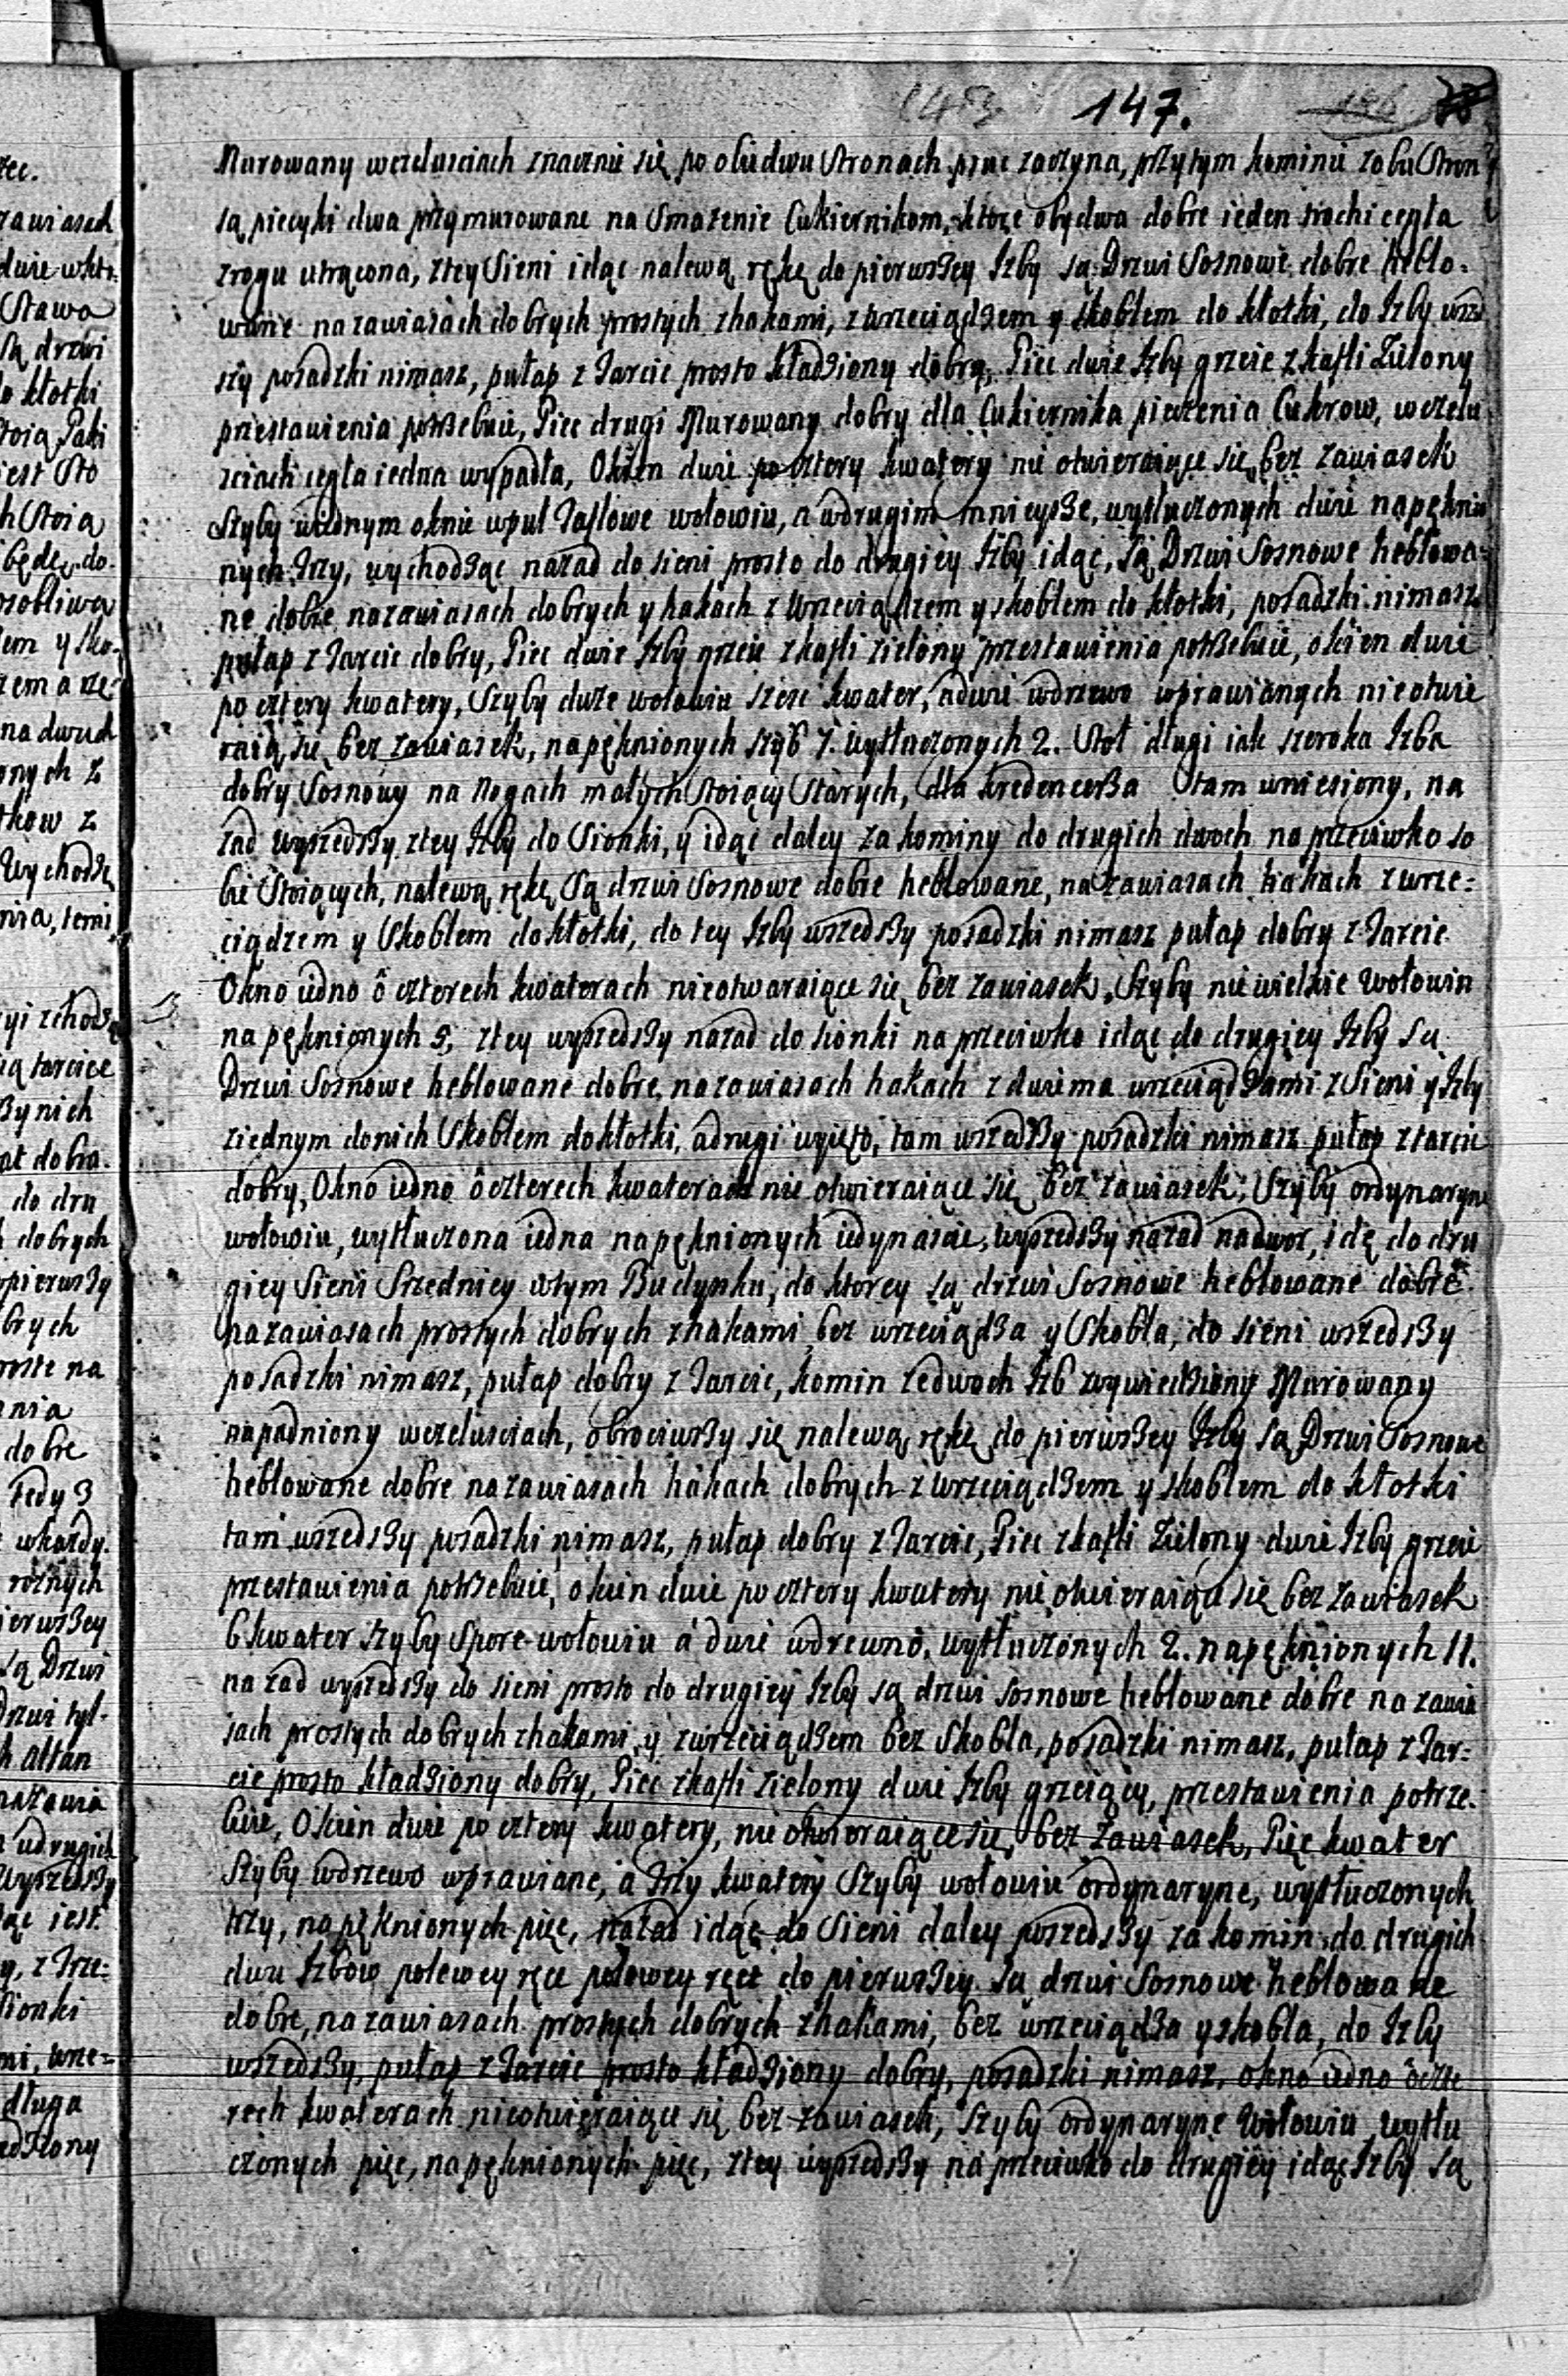 147.
Murowany wczeluściach znacznie się po obudwu Stronach psuc zaczyna, przytym kominie zobu Stron
są piecyki dwa przymurowane na Smażenie Cukiernikom, ktore obydwa dobre ieden trochi cegła
zrogu utrącona, ztey Sieni idąc nalewą rękę do pierwszey Izby są Drzwi Sosnowe dobre heblo-
wane na zawiasach dobrych prostych zhakami, z wrzeciądzem y skoblem do kłotki, do Izby wszed
szy posadzki nimasz, pułap z Tarcic prosto kładziony dobry, Piec dwie Izby grzeie z kafli Zielony
przestawienia potrzebuie, Piec drugi Murowany dobry dla Cukiernika pieczenia Cukrow, wczelu
sciach cegła iedna wypadła, Okien dwie po cztery kwatery nie otwieraiące się, bez zawiasek
Szyby wiednym oknie wpuł Taflowe wołowiu, a wdrugim mnieysze, wytłuczonych dwie napęknio
nych Trzy, wychodząc nazad do sieni prosto do drugiey Izby idąc, są Drzwi Sosnowe heblowa-
ne dobre nazawiasach dobrych y hakach z Wrzeciądzem y skoblem do kłotki, posadzki nimasz
pułap z Tarcic dobry, Piec dwie Izby grzeie z kafli zielony przestawienia potrzebuie, okien dwie
po cztery kwatery, Szyby duże wołowiu szesc kwater, adwie wdrzewo wprawianych nieotwie
raią się bez zawiasek, napęknionych szyb 7. wytłuczonych 2. Stoł długi iak szeroka Izba
dobry Sosnowy na Nogach małych Stoiący Starych, dla kredencerza tam wniesiony, na
zad wyszedszy ztey Izby do Sionki, y idąc daley za kominy do drugich dwoch naprzeciwko so
bie Stoiących, nalewą rękę Są drzwi Sosnowe dobre heblowane, na zawiasach hakach z wrze-
ciądzem y Skoblem do kłotki, do tey Izby wszedszy posadzki nimasz pułap dobry z Tarcic
Okno iedno ô czterech kwaterach nieotwaraiące się bez zawiasek, Szyby niewielkie Wołowiu
napęknionych 5, ztey wyszedszy nazad do sionki naprzeciwko idąc do drugiey Izby są
Drzwi Sosnowe heblowane dobre, nazawiasach hakach z dwiema wrzeciądzami z Sieni y Izby
ziednym donich Skoblem do kłotki, adrugi wyięto, tam wszedszy posadzki nimasz pułap z tarcic
dobry, Okno iedno ô czterech kwaterach nie otwieraiące się bez zawiasek, Szyby ordynaryine
wołowiu, wytłuczona iedna napęknionych iedynascie, wyszedszy nazad nadwor, idę do dru
giey Sieni Srzedniey wtym Budynku, do ktorey są drzwi Sosnowe heblowane dobre
nazawiasach prostych dobrych zhakami bez wrzeciądza y Skobla, do sieni wszedszy
posadzki nimasz, pułap dobry z Tarcic, komin zedwoch Izb wywiedziony Murowany
napadniony wczeluściach, obrociwszy się nalewą rękę do pierwszey Izby są Drzwi Sosnowe
heblowane dobre nazawiasach hakach dobrych z wrzeciądzem y skoblem do kłotki
tam wszedszy posadzki nimasz, pułap dobry z Tarcic, Piec zkafli Zielony dwie Izby grzeie
przestawienia potrzebuie, okien dwie po cztery kwatery nie otwieraiące się bez zawiasek
6 kwater szyby Spore wołowiu a dwie wdrewno, wytłuczonych 2. napęknionych 11.
nazad wyszedszy do sieni prosto do drugiey Izby są drzwi sosnowe heblowane dobre na zawia
sach prostych dobrych zhakami, y zwrzeciądzem bez Skobla, posadzki nimasz, pułap z Tar-
cic prosto kładziony dobry, Piec zkafli zielony dwie Izby grzeiący, przestawienia potrze-
buie, Okien dwie po cztery kwatery, nie otwieraiące się, bez zawiasek, Pięć kwater
Szyby wdrzewo wprawiane, a Trzy kwatery Szyby wołowiu ordynaryne, wytłuczonych
trzy, napęknionych pięc, nazad idąc do Sieni daley poszedszy za komin, do drugich
dwu Izbow polewey ręce polewey ręce do pierwszey są drzwi Sosnowe heblowane
dobre, nazawiasach prostych dobrych zhakami, bez wrzeciądza y skobla, do Izby
wszedszy, pułap z Tarcic prosto kładziony dobry, posadzki nimasz, okno iedno ô czte
rech kwaterach nieotwieraiące się bez zawiasek, Szyby ordynaryne Wołowiu wytłu
czonych pięc, napęknionych pięc, ztey wyszedszy na przeciwko do drugiey idąc Izby są